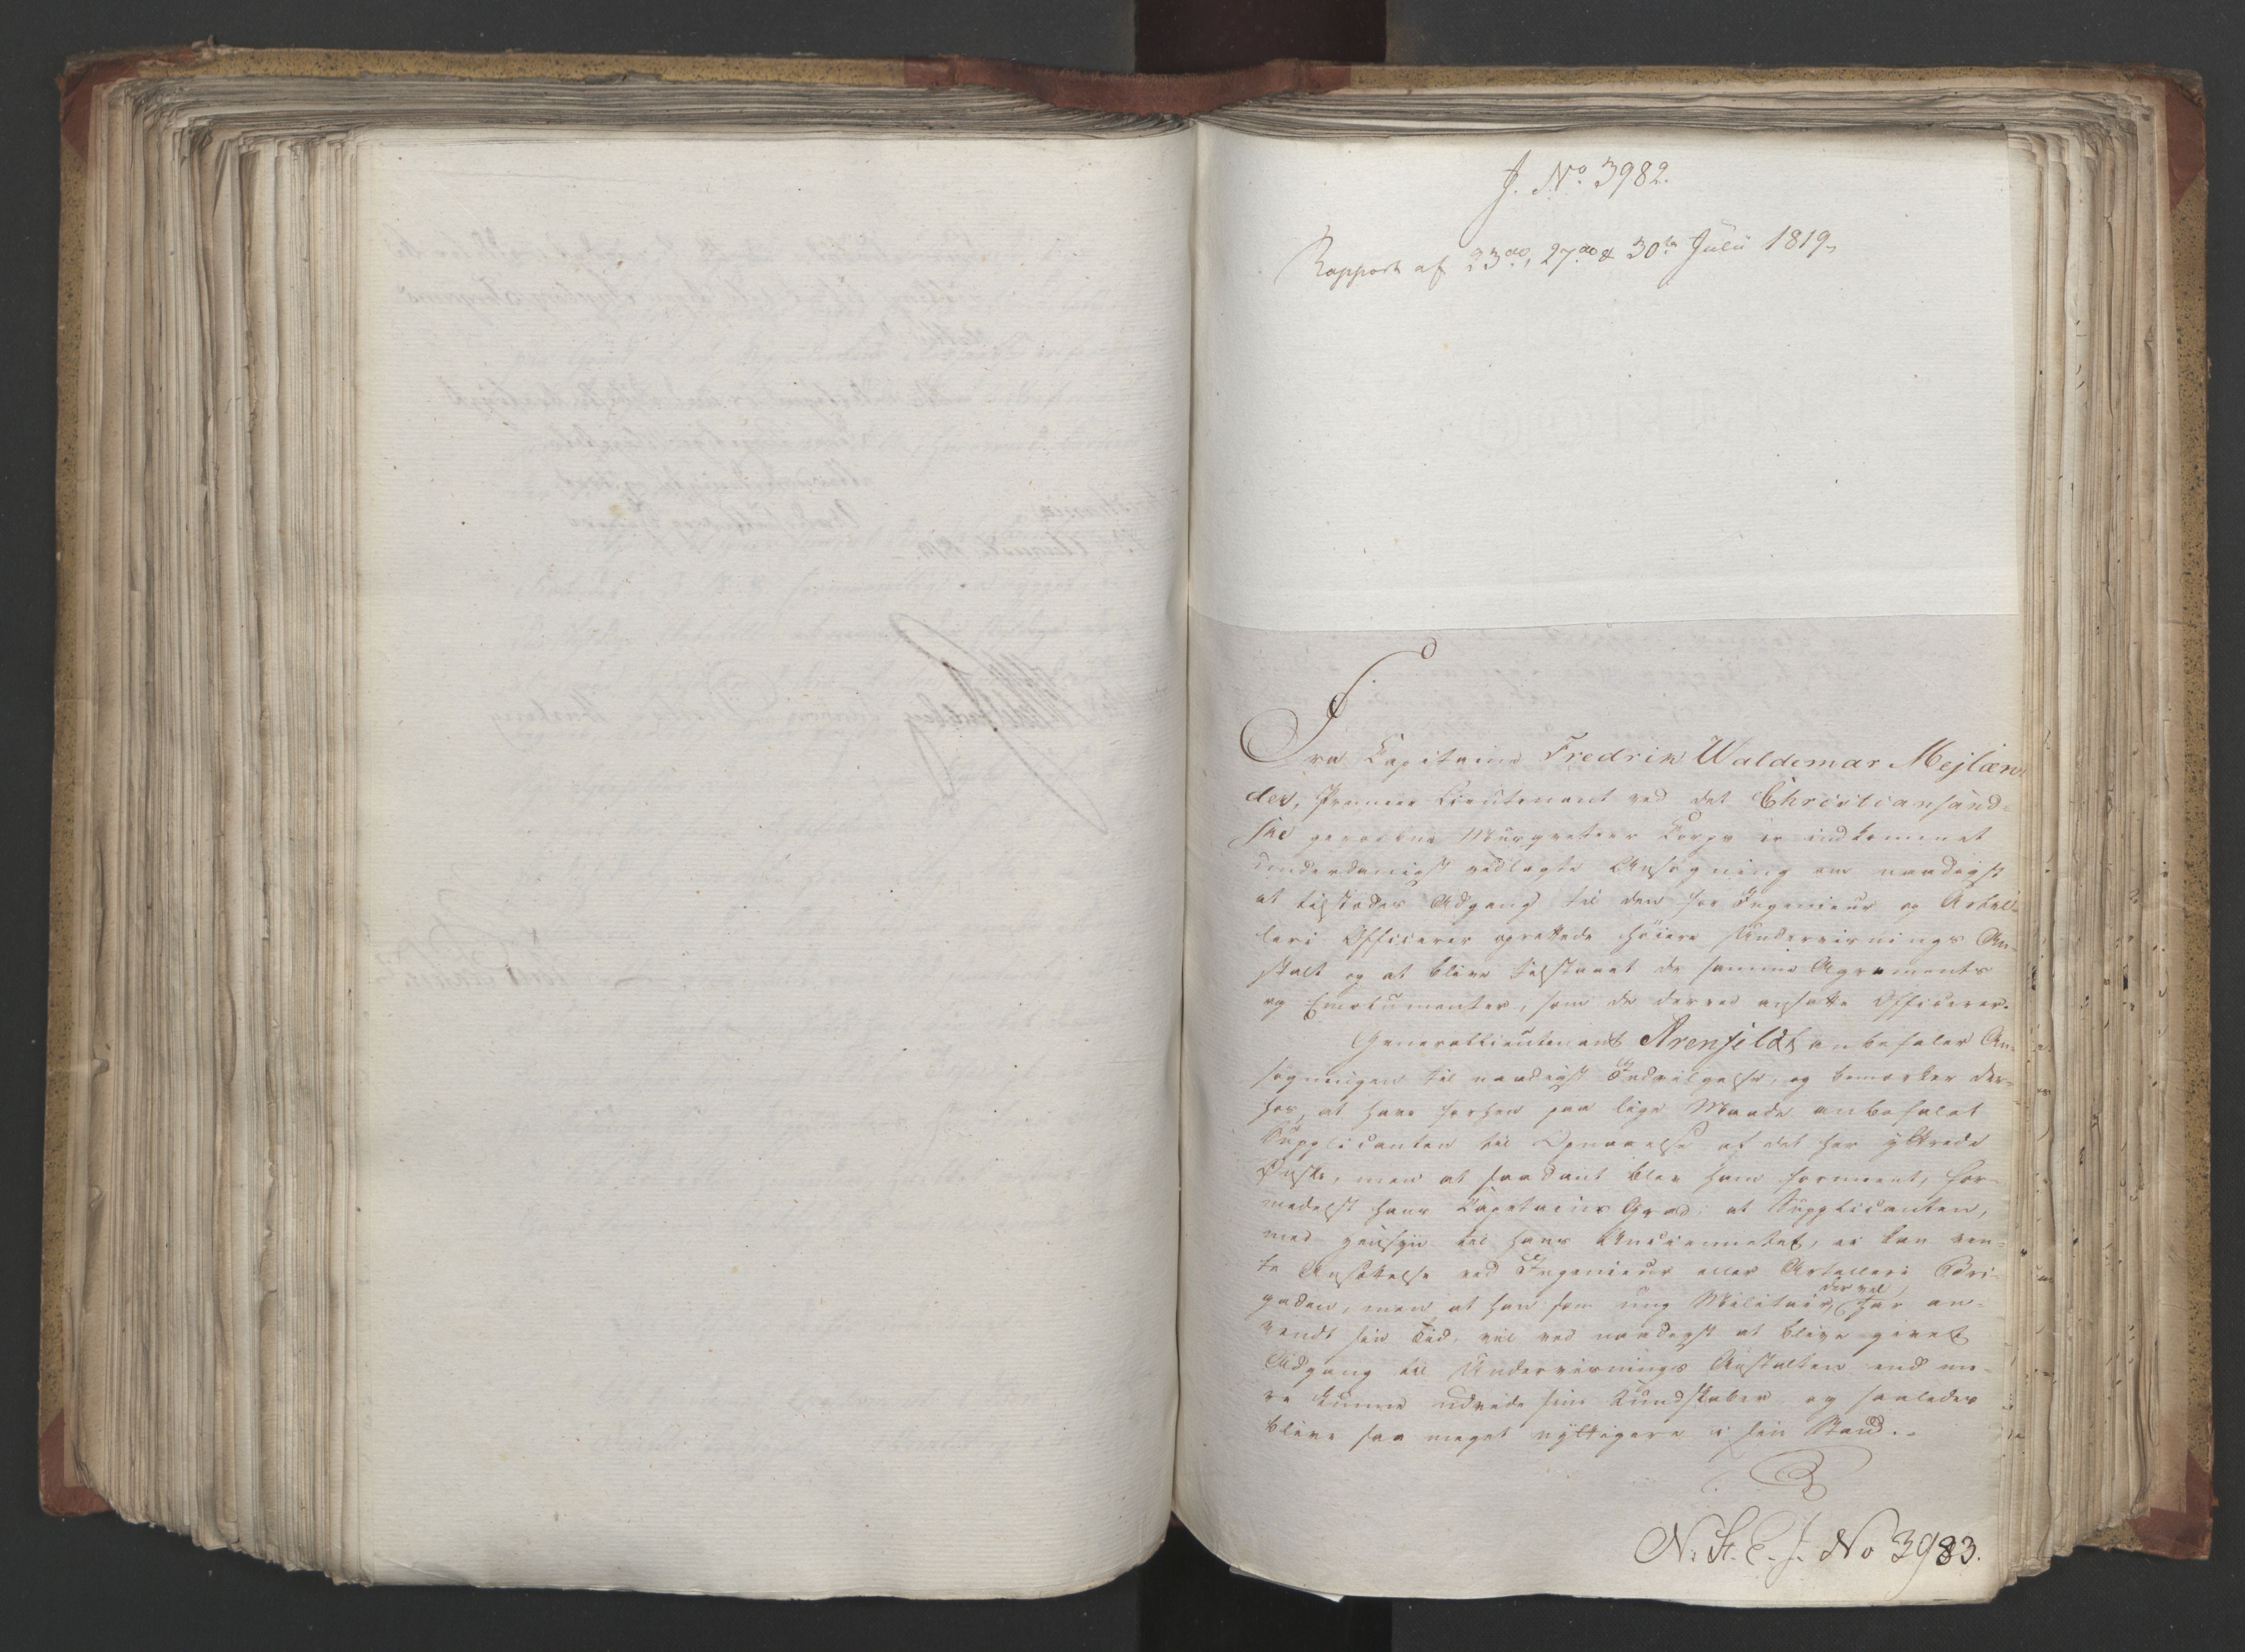 J. No. 3982.
Rapport af 23de, 27de & 30te Julii 1819,
Fra Capitaine Fredrik Waldemar Mejlæn-
der, Premier Lieutenant ved det Christiansand-
ske gevorbne Musqueteer Corps er indkommet
underdanigst vedlagte Ansøgning om naadigst
at tilstædes Adgang til den for Ingenieur og Artil-
leri Officerer oprettede høiere Undervisnings An-
stalt og at blive tilstaaet de samme Agrements
og Emolumenter, som de derved ansatte Officerer.
Generallieutenant Arenfeldt anbefaler An-
søgningen til naadigst Indvilgelse, og bemærker der-
hos, at have forhen paa lige Maade anbefalet
Supplicanten til Opnaaelse af det her yttrede
Ønske, men at saadant blev ham formeent, for-
medelst hans Capitains Grad; at Supplicanten,
med Hensyn til hans Anciennetet, ei kan ven-
te Ansættelse ved Ingenieur eller Artilleri Bri-
gaden, men at han som ung Militair, der vel har an-
vendt sin Tid, vil ved naadigst at blive givet
Adgang til Undervisnings Anstalten end me-
re kunne udvide sine Kundskaber og saaledes
blive saa meget nyttigere i sin Stand.
N. St. E. J. No 3983.